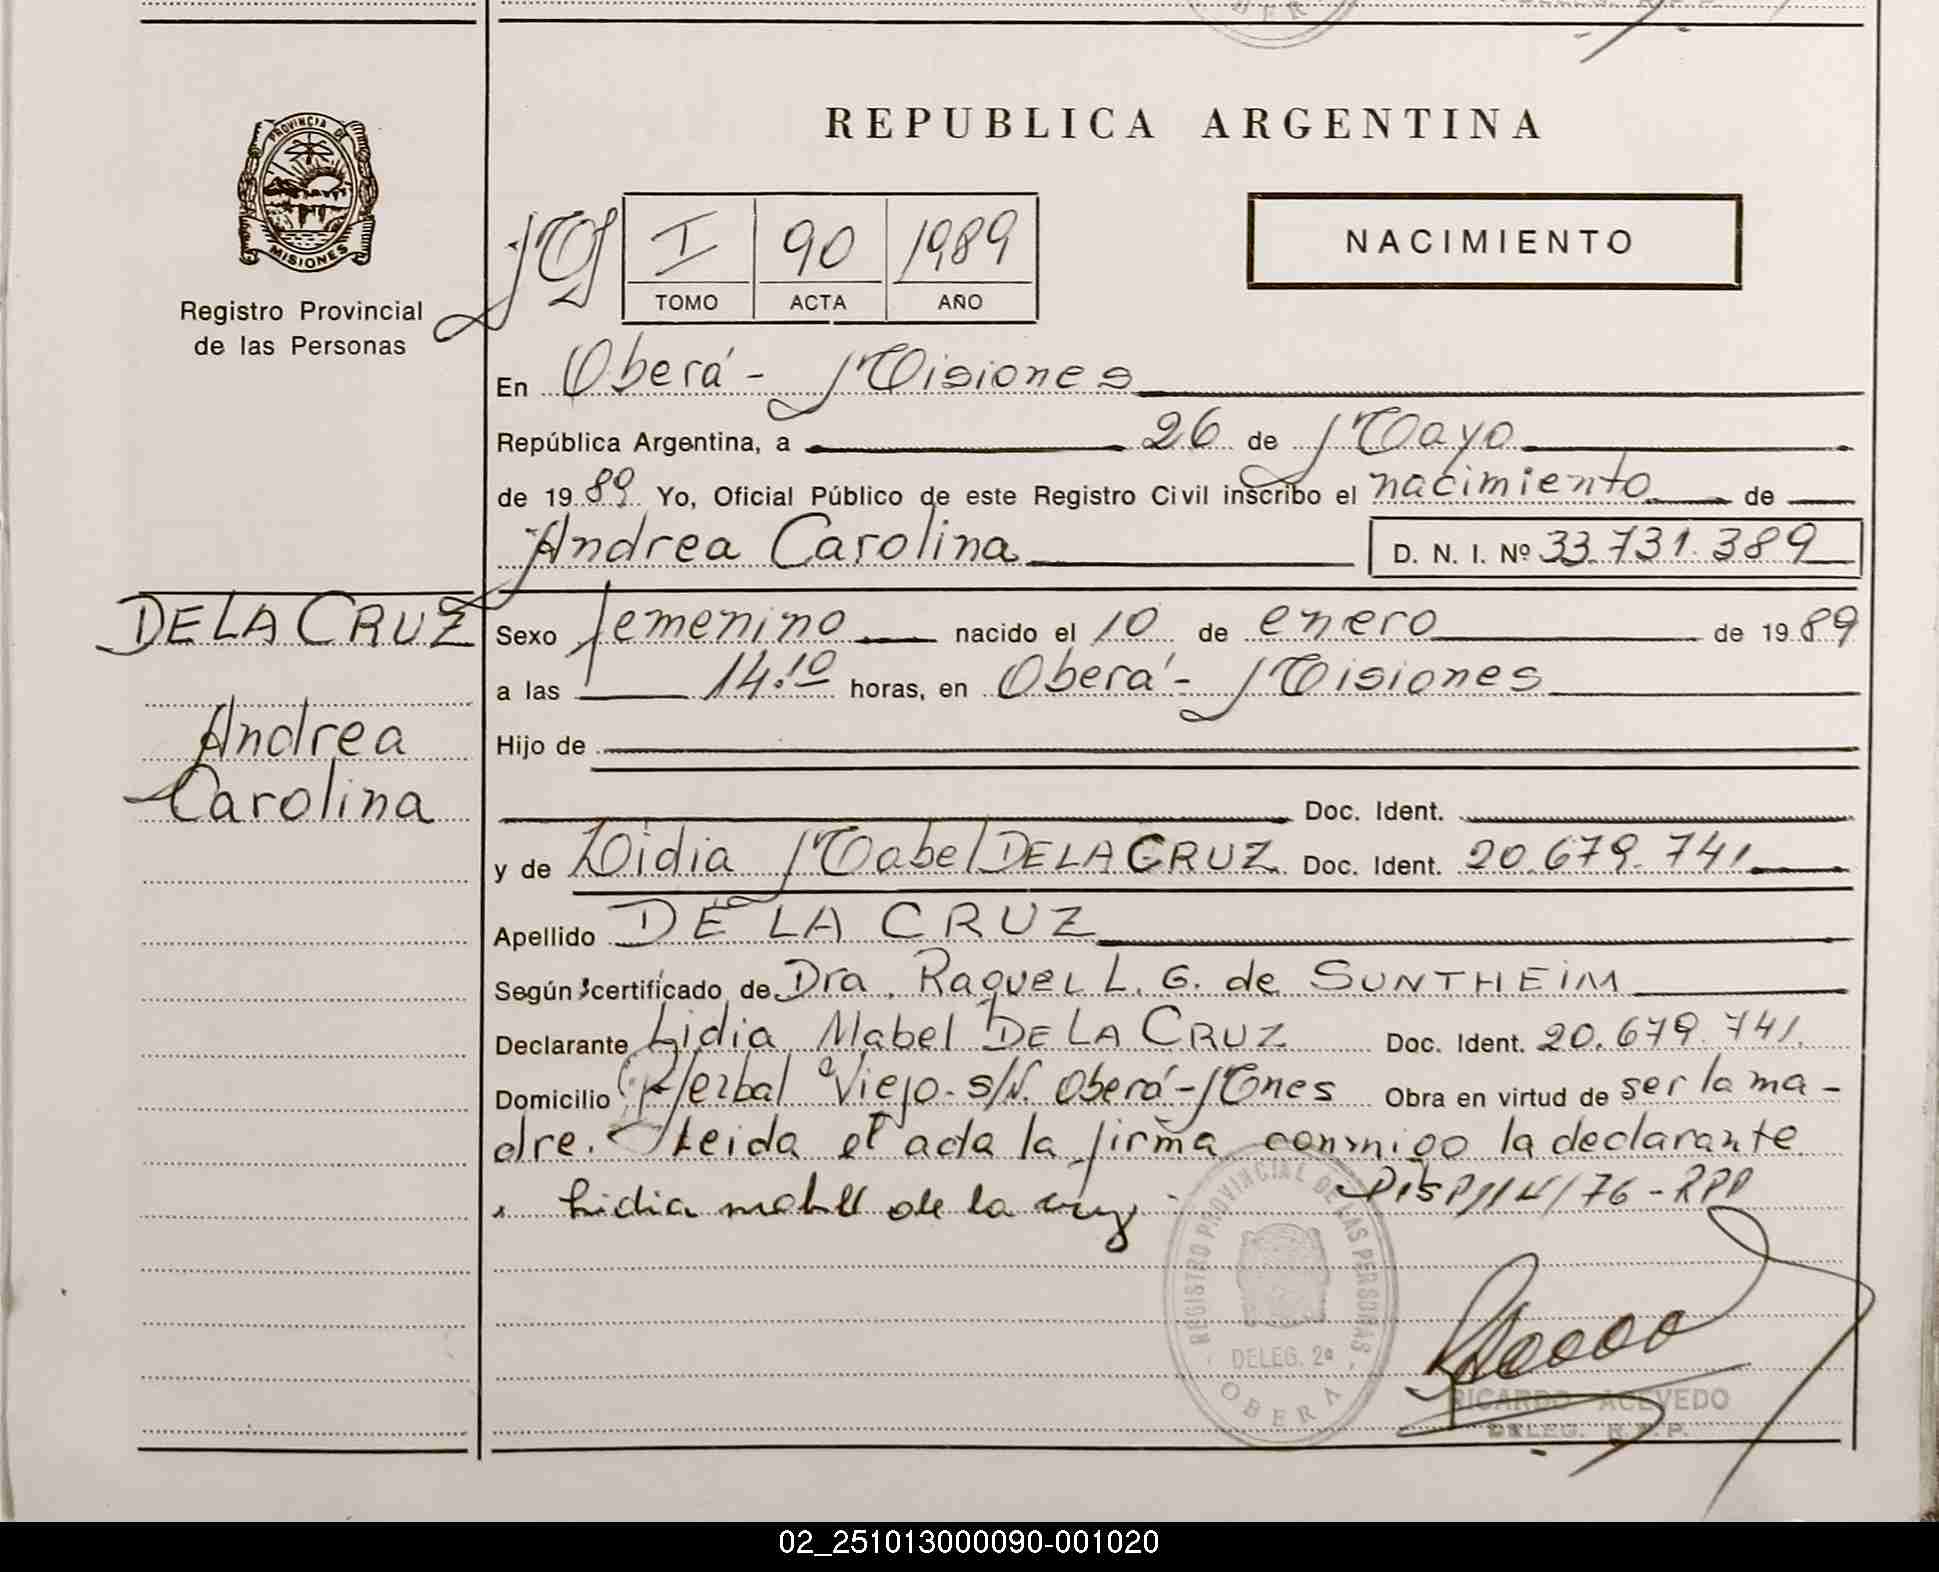 REPUBLICA ARGENTINA
PROVINCIA DE
MISIONES
Registro Provincial
de las Personas
I 90 1989
TOMO ACTA AÑO
NACIMIENTO
En Oberá - Misiones
República Argentina, a 26 de Mayo
de 1989 Yo, Oficial Público de este Registro Civil inscribo el nacimiento de
Andrea Carolina D. N. I. Nº 33.731.389
DE LA CRUZ
Andrea
Carolina
Sexo femenino nacido el 10 de enero de 1989
a las 14:10 horas, en Oberá - Misiones
Hijo de
Doc. Ident.
y de Lidia Mabel DE LA CRUZ Doc. Ident. 20.679.741
Apellido DE LA CRUZ
Según certificado de Dra. Raquel L. G. de SUNTHEIM
Declarante Lidia Mabel DE LA CRUZ Doc. Ident. 20.679.741
Domicilio Yerbal Viejo - s/N. Oberá - Mnes Obra en virtud de ser la ma-
dre. Leida el acta la firma conmigo la declarante
Lidia mabel de la cruz
REGISTRO PROVINCIAL DE LAS PERSONAS
DELEG. 2ª
OBERA
RICARDO ACEVEDO
DELEG. R.P.P.
02_251013000090-001020